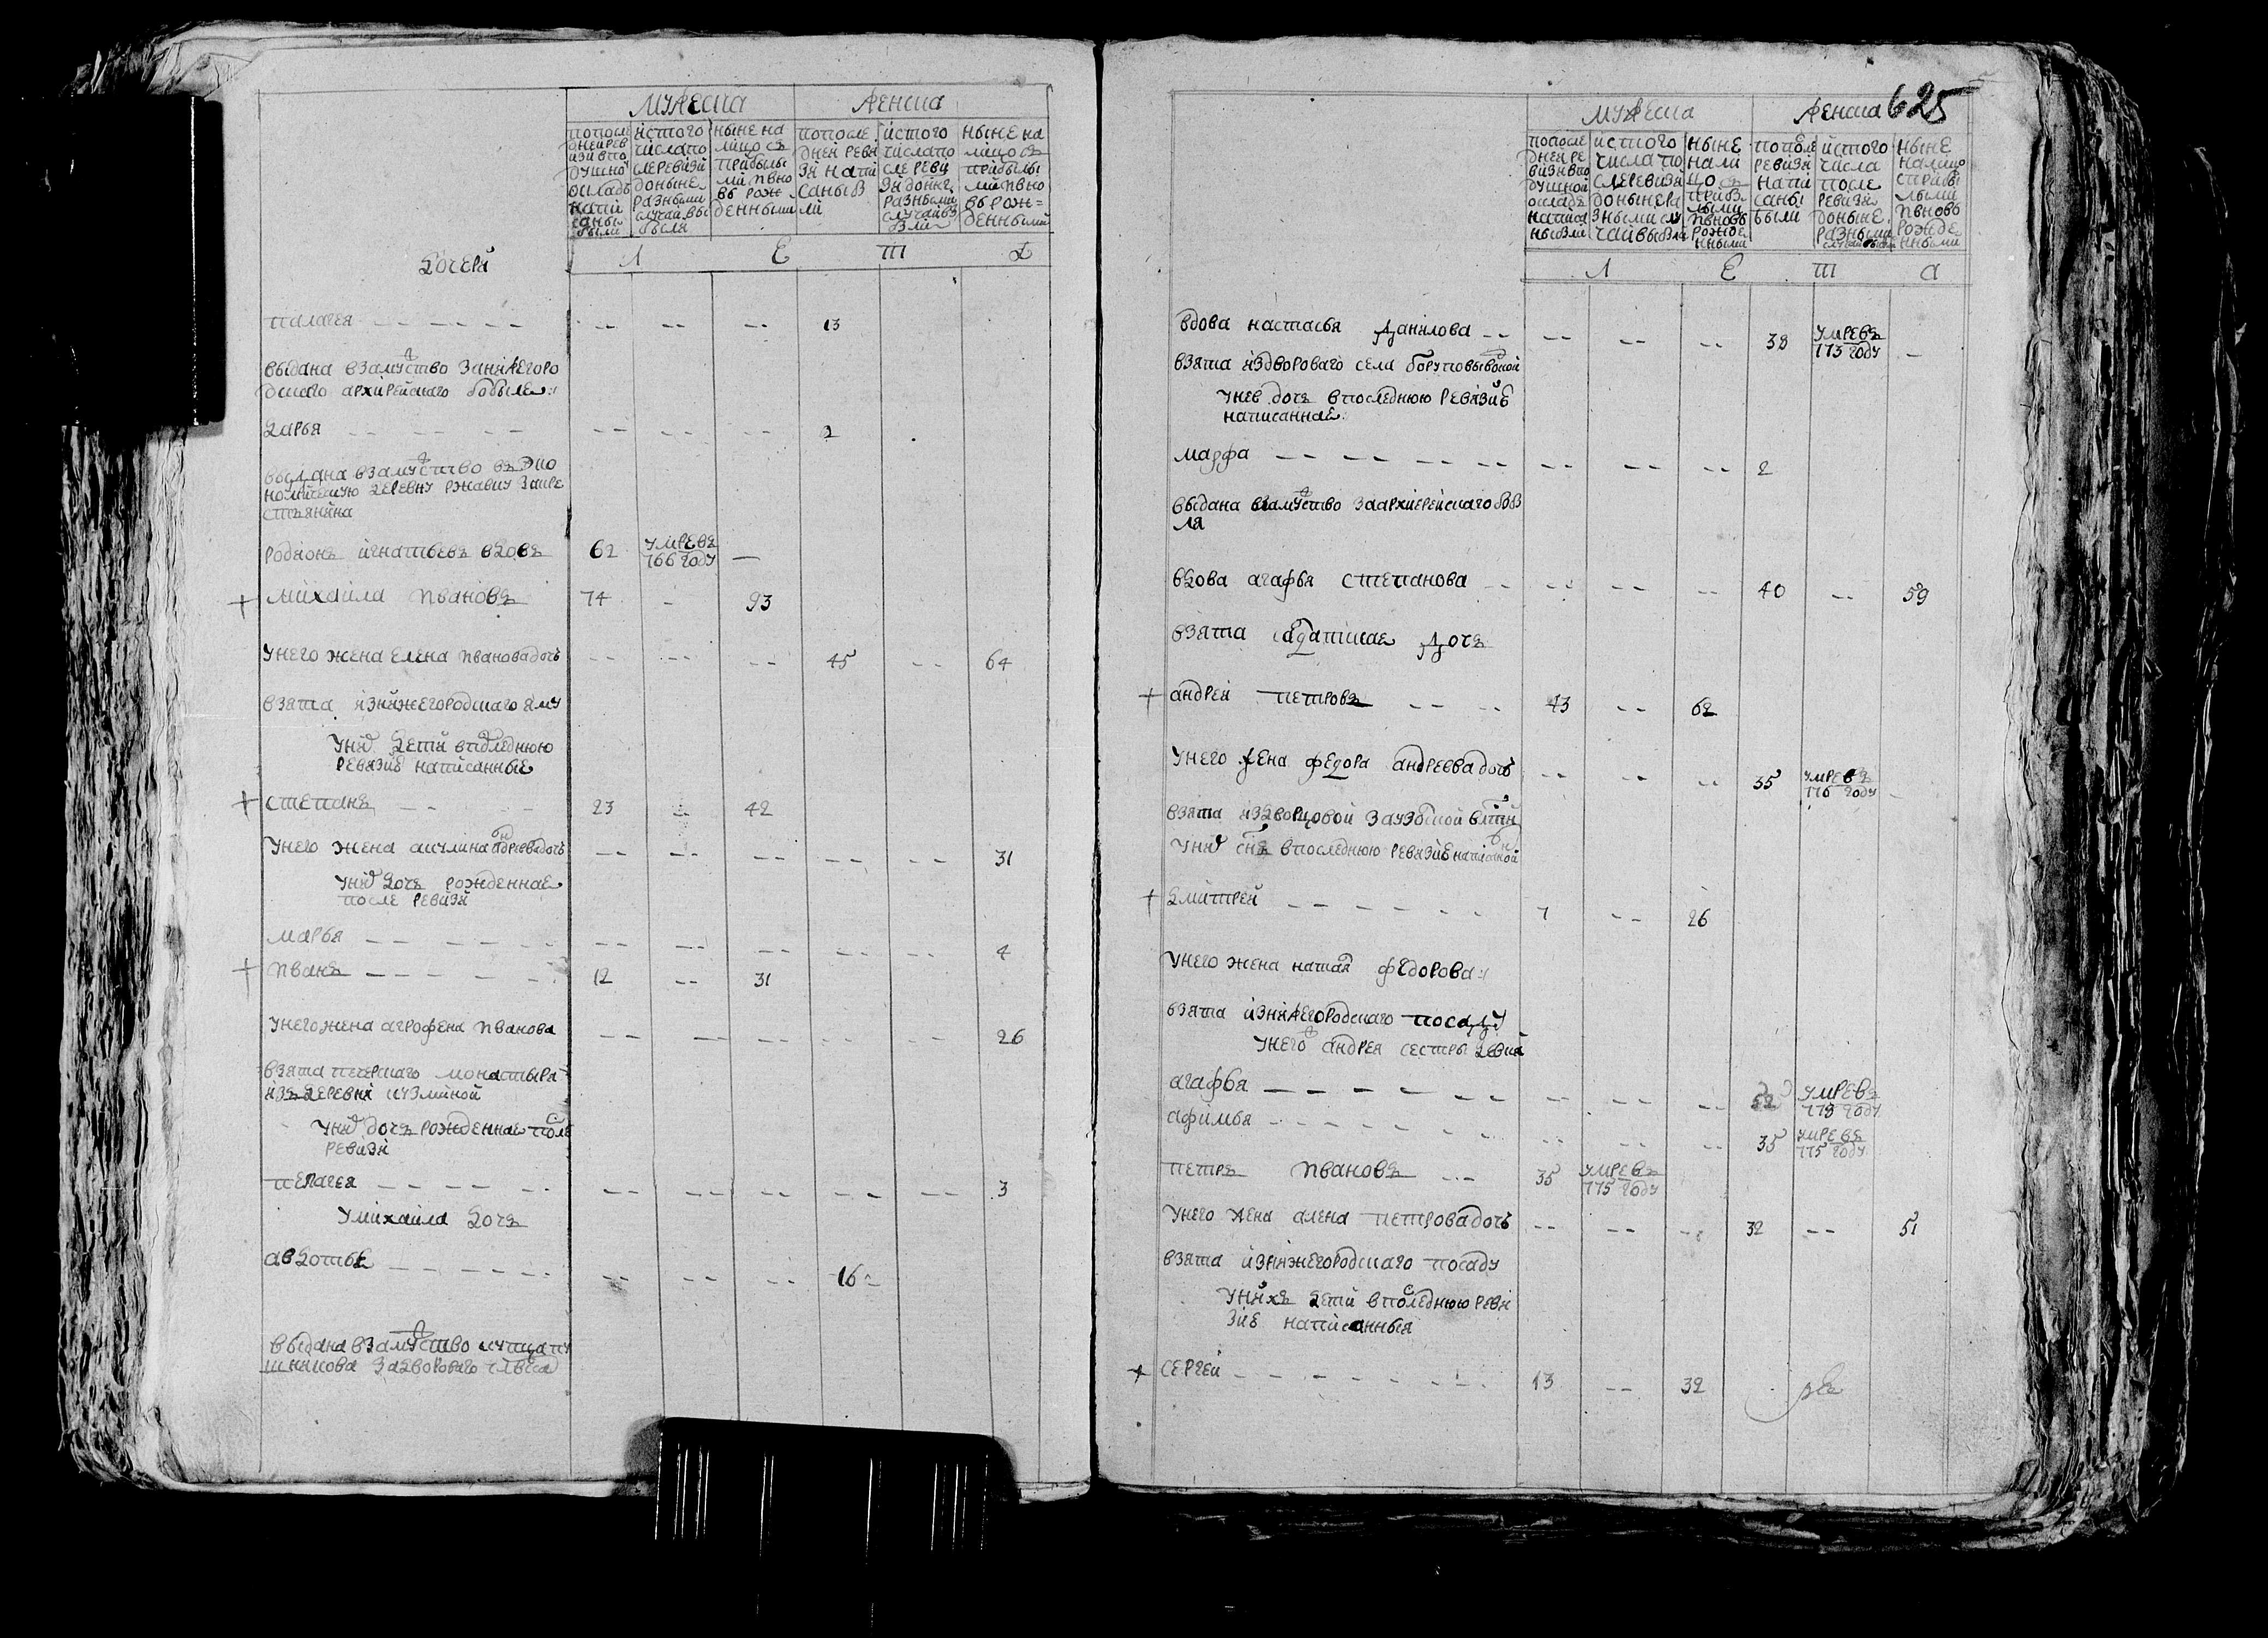 мужеска женска
попосле дней рев изи в по душно окладъ напи саны были
ис того числа по сле ревизи до ныне разными случаи вы были
ныне на лицо съ прибылы ми и вно въ рож денными
попосле дней реви зи напи саны б ли
ис того числа по сле реви зи до ныне разными случаи вы
ныне на лицо съ прибылы ми и вно въ рож= денными
дочери
Л Е Т А
палагея 13
выдана взамуство занижегоро
дскаго архирейскаго бобыля
дарья 2
выдана взамуство въ эко
номическую деревню ржавку за кре
стьянина
родионъ игнатьевъ вдовъ 62 умре въ 766 году
+ михаила ивановъ 74 93
унего жена елена иванова дочь 45 64
взята изнижегородскаго яму
уних дети в последнюю
ревизию написанные
+ степанъ 23 42
унего жена акулина андреева дочь 31
уних дочь рожденная
после ревизи
марья 4
+ иванъ 12 31
унего жена агрофена иванова 26
взята печерскаго монастыря
изъ деревни кузминой
уних дочь рожденная после
ревизи
пелагея 3
умихаила дочь
авдотья 16
выдана взамуство купца пу
шникова за двороваго члвека
625
мужеска женска
попосле дней ре визи в по душной окладъ написа ны были
ис того числа по сле ревизи до ныне ра зными слу чаи выбыли
ныне нали цо съ прибы лыми и вновь рожде нными
попосле ревизи напи саны были
ис того числа после ревизи до ныне разными случаи выбыли
ныне налицо с прибы лыми и вновь рожде нными
Л Е Т А
вдова настасья данилова 38 умре въ 773 году
взята из двороваго села
унев дочь в последнюю ревизию
написанная
марфа 2
выдана взамуство за архиерейскаго бобы
ля
вдова агафья степанова 40 59
взята дочь
+ андрей петровъ 43 62
унего жена федора андреева дочь 35 умре въ 776 году
взята из дворцовой заузолской влтни
уних снъ в последнюю ревизию написаной
+ дмитрей 7 26
унего жена наталя федорова
взята изнижегородскаго посаду
унего андрея сестры девки
агафья 52 умре въ 778 году
афимья 35 умре въ 775 году
петръ ивановъ 35 умре въ 775 году
унего жена алена петрова дочь 32 51
взята изнижегородскаго посаду
унихъ дети в последнюю реви
зию написанныя
+ сергей 13 32